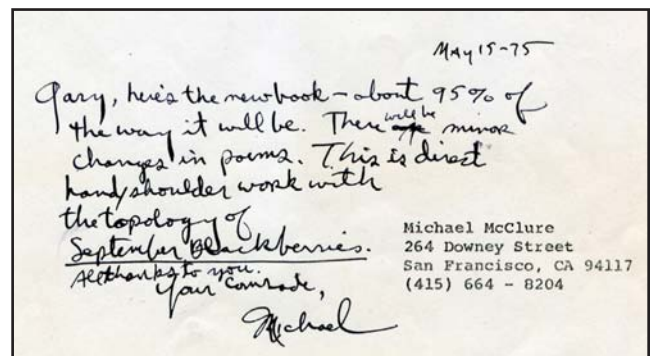 May 15-75
Gary, here's the new book - about 95% of
the way it will be. There will be minor
changes in poems. This is direct
hand/shoulder work with
the topology of
September Blackberries.
All thanks to you.
Your Comrade,
Michael
Michael McClure
264 Downey Street
San Francisco, CA 94117
(415) 664 - 8204